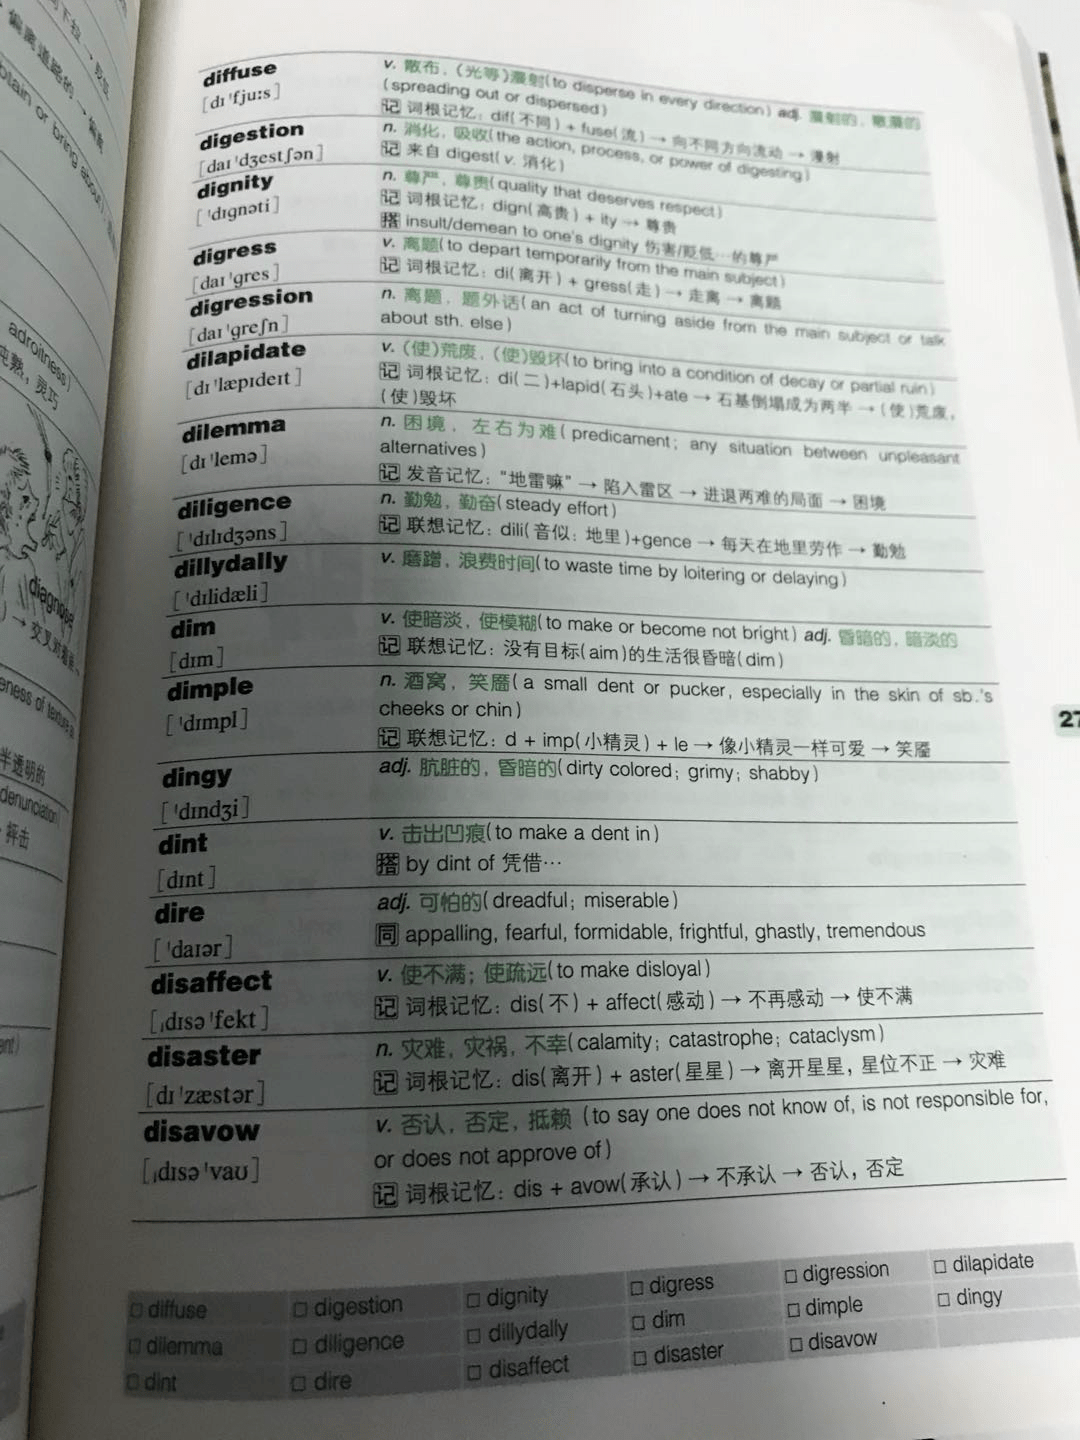 diffuse
[dɪˈfjuːs]
v. 散布，(光等)漫射(to disperse in every direction) adj. 漫射的，散漫的
(spreading out or dispersed)
记 词根记忆：dif(不同) + fuse(流) → 向不同方向流动 → 漫射
digestion
[daɪˈdʒestʃən]
n. 消化，吸收(the action, process, or power of digesting)
记 来自 digest(v. 消化)
dignity
[ˈdɪgnəti]
n. 尊严，尊贵(quality that deserves respect)
记 词根记忆：dign(高贵) + ity → 尊贵
搭 insult/demean to one's dignity 伤害/贬低…的尊严
digress
[daɪˈgres]
v. 离题(to depart temporarily from the main subject)
记 词根记忆：di(离开) + gress(走) → 走离 → 离题
digression
[daɪˈgreʃn]
n. 离题，题外话(an act of turning aside from the main subject or talk
about sth. else)
dilapidate
[dɪˈlæpɪdeɪt]
v. (使)荒废，(使)毁坏(to bring into a condition of decay or partial ruin)
记 词根记忆：di(二)+lapid(石头)+ate → 石基倒塌成为两半 → (使)荒废，
(使)毁坏
dilemma
[dɪˈlemə]
n. 困境，左右为难(predicament; any situation between unpleasant
alternatives)
记 发音记忆："地雷嘛" → 陷入雷区 → 进退两难的局面 → 困境
diligence
[ˈdɪlɪdʒəns]
n. 勤勉，勤奋(steady effort)
记 联想记忆：dili(音似：地里)+gence → 每天在地里劳作 → 勤勉
dillydally
[ˈdɪlidæli]
v. 磨蹭，浪费时间(to waste time by loitering or delaying)
dim
[dɪm]
v. 使暗淡，使模糊(to make or become not bright) adj. 昏暗的，暗淡的
记 联想记忆：没有目标(aim)的生活很昏暗(dim)
dimple
[ˈdɪmpl]
n. 酒窝，笑靥(a small dent or pucker, especially in the skin of sb.'s
cheeks or chin)
记 联想记忆：d + imp(小精灵) + le → 像小精灵一样可爱 → 笑靥
dingy
[ˈdɪndʒi]
adj. 肮脏的，昏暗的(dirty colored; grimy; shabby)
dint
[dɪnt]
v. 击出凹痕(to make a dent in)
搭 by dint of 凭借…
dire
[ˈdaɪər]
adj. 可怕的(dreadful; miserable)
同 appalling, fearful, formidable, frightful, ghastly, tremendous
disaffect
[ˌdɪsəˈfekt]
v. 使不满；使疏远(to make disloyal)
记 词根记忆：dis(不) + affect(感动) → 不再感动 → 使不满
disaster
[dɪˈzæstər]
n. 灾难，灾祸，不幸(calamity; catastrophe; cataclysm)
记 词根记忆：dis(离开) + aster(星星) → 离开星星，星位不正 → 灾难
disavow
[ˌdɪsəˈvaʊ]
v. 否认，否定，抵赖 (to say one does not know of, is not responsible for,
or does not approve of)
记 词根记忆：dis + avow(承认) → 不承认 → 否认，否定
□ diffuse □ digestion □ dignity □ digress □ digression □ dilapidate
□ dilemma □ diligence □ dillydally □ dim □ dimple □ dingy
□ dint □ dire □ disaffect □ disaster □ disavow
27
偏离道路的 → 偏离
adroitness)
纯熟，灵巧
diagnose
半透明的
denunciation)
抨击